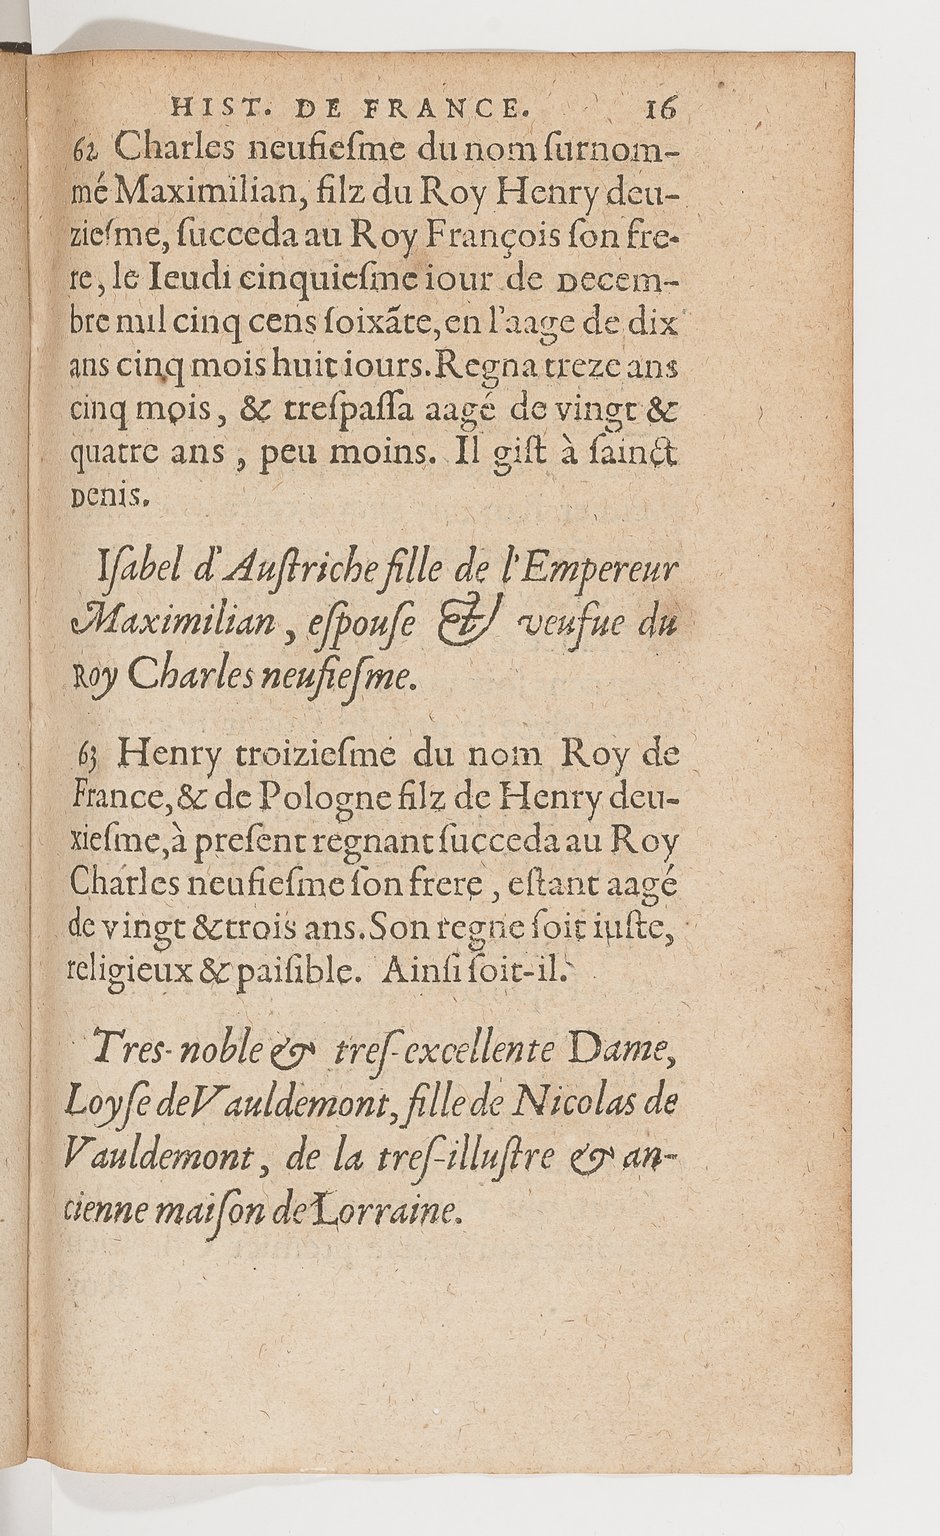 HIST. DE FRANCE. 16
62 Charles neufieſme du nom ſurnom-
mé Maximilian, filz du Roy Henry deu-
zieſme, ſucceda au Roy François ſon fre-
re, le Ieudi cinquieſme iour de Decem-
bre mil cinq cens ſoixãte, en l'aage de dix
ans cinq mois huit iours. Regna treze ans
cinq mois, & treſpaſſa aagé de vingt &
quatre ans, peu moins. Il giſt à ſainct
Denis.
Iſabel d'Auſtriche fille de l'Empereur
Maximilian, eſpouſe & veufue du
Roy Charles neufieſme.
63 Henry troizieſme du nom Roy de
France, & de Pologne filz de Henry deu-
xieſme, à preſent regnant ſucceda au Roy
Charles neufieſme ſon frere, eſtant aagé
de vingt & trois ans. Son regne ſoit iuſte,
religieux & paiſible. Ainſi ſoit-il.
Tres-noble & treſ-excellente Dame,
Loyſe de Vauldemont, fille de Nicolas de
Vauldemont, de la treſ-illuſtre & an-
cienne maiſon de Lorraine.